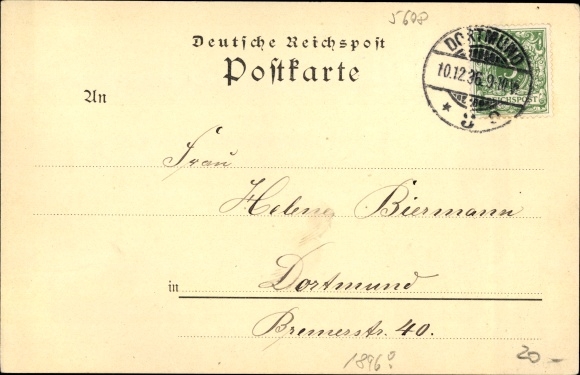 5608
Deutsche Reichspost
Postkarte
DORTMUND
10.12.96.9-10V.
* 3 c
REICHSPOST
5
An
Frau
Helene Biermann
in Dortmund
Bremerstr. 40.
1896?
20-